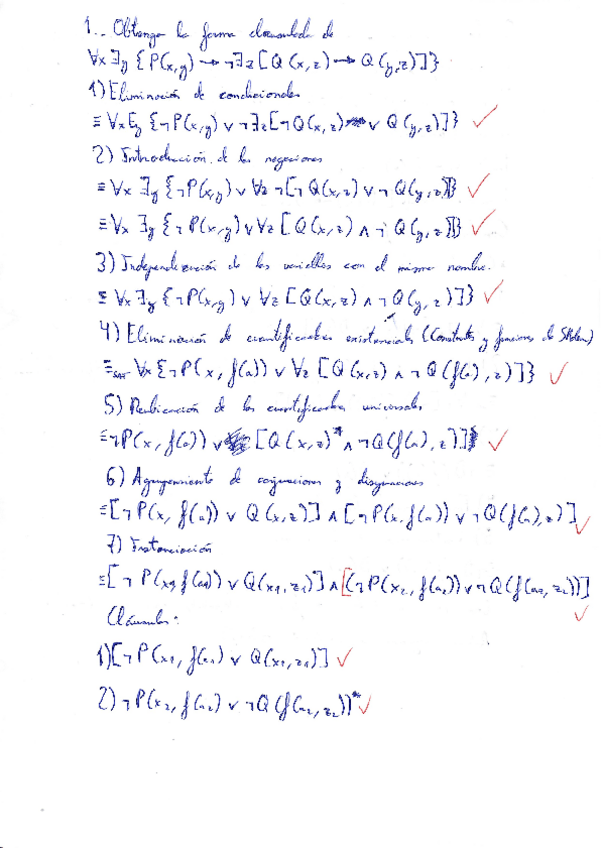 1.- Obtenga la forma clausulada de
∀x ∃y {P(x,y) → ¬∃z [Q(x,z) → Q(y,z)]}
1) Eliminación de condicionales
≡ ∀x Ey {¬P(x,y) ∨ ¬∃z[¬Q(x,z) ∨ Q(y,z)]}
2) Introducción de las negaciones
≡ ∀x ∃y {¬P(x,y) ∨ ∀z ¬[¬Q(x,z) ∨ ¬Q(y,z)]}
≡ ∀x ∃y {¬P(x,y) ∨ ∀z [Q(x,z) ∧ ¬Q(y,z)]}
3) Independización de las variables con el mismo nombre.
≡ ∀x ∃y {¬P(x,y) ∨ ∀z [Q(x,z) ∧ ¬Q(y,z)]}
4) Eliminación de cuantificadores existenciales (Constantes y funciones de Skolem)
≡SAT ∀x {¬P(x, f(a)) ∨ ∀z [Q(x,z) ∧ ¬Q(f(a),z)]}
5) Reubicación de los cuantificadores universales
≡¬P(x, f(a)) ∨ [Q(x,z) ∧ ¬Q(f(a),z)]
6) Agrupamiento de conjunciones y disyunciones
≡[¬P(x, f(a)) ∨ Q(x,z)] ∧ [¬P(x, f(a)) ∨ ¬Q(f(a),z)]
7) Instanciación
≡[¬P(x1, f(a1)) ∨ Q(x1,z1)] ∧ [(¬P(x2, f(a2)) ∨ ¬Q(f(a2,z2))]
Cláusulas:
1)[¬P(x1, f(a1) ∨ Q(x1,z1)]
2) ¬P(x2, f(a2) ∨ ¬Q(f(a2,z2))